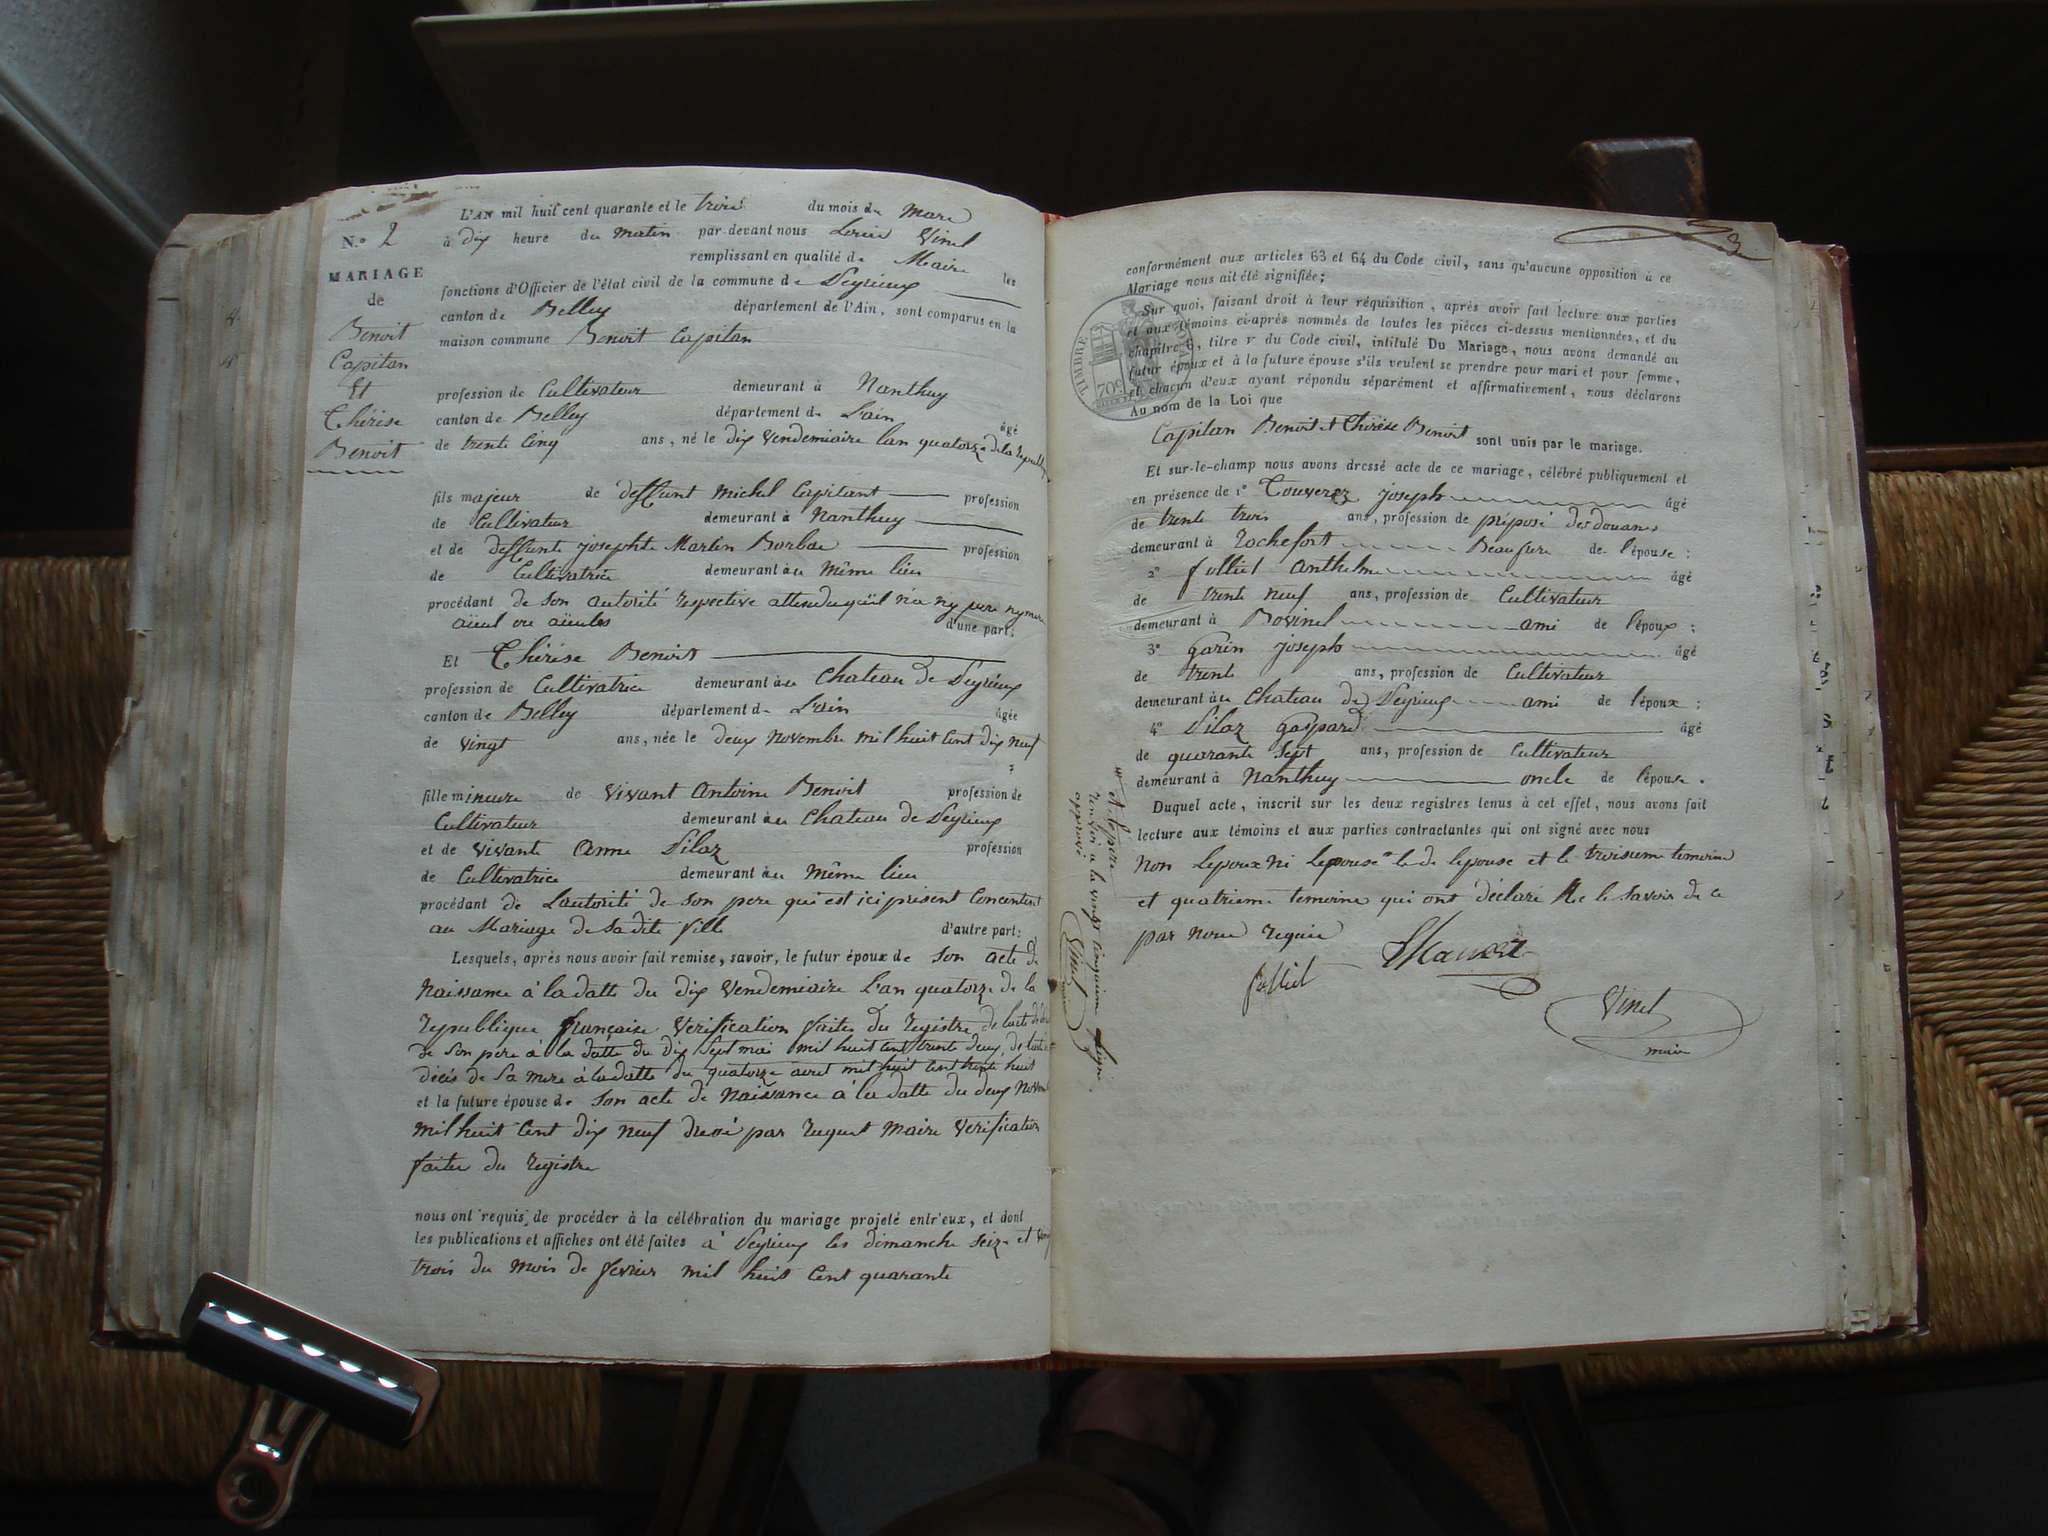 N.º 2
MARIAGE
de
Benoit
Capitan
Et
Thérèse
Benoit
L'AN mil huit cent quarante et le trois du mois de Mars
à dix heure du matin par-devant nous Louis Vinel
remplissant en qualité de Maire les
fonctions d'Officier de l'état civil de la commune de Peyrieux
canton de Belley département de l'Ain, sont comparus en la
maison commune Benoit Capitan
profession de Cultivateur demeurant à Nanthuy
canton de Belley département de L'ain âgé
de trente cinq ans, né le dix Vendemiaire l'an quatorze de la republi
fils majeur de deffunt Michel Capitant profession
de Cultivateur demeurant à Nanthuy
et de deffunte josephte Martin Barbae profession
de Cultivatrice demeurant au même lieu
procédant de son autorité respective attendu qu'il n'a ny pere ny mere
aieul ou aieules d'une part;
Et Thérèse Benoit
profession de Cultivatrice demeurant au Chateau de Peyrieux
canton de Belley département de L'ain âgée
de vingt ans, née le deux novembre mil huit cent dix neuf
fille mineure de vivant Antoine Benoit profession de
Cultivateur demeurant au Chateau de Peyrieux
et de vivante Anne Pilaz profession
de Cultivatrice demeurant au même lieu
procédant de L'autorité de son pere qui est ici présent Concentent
au Mariage de sa dite fille d'autre part:
Lesquels, après nous avoir fait remise, savoir, le futur époux de Son acte de
Naissance à la datte du dix Vendemiaire L'an quatorze de la
Republique française Verification faite du Registre de l'acte de
de son pere à la datte du dix sept mai mil huit cent trente deux, de l'acte
décès de sa mere à la datte du quatorze aout mil huit cent trente huit
et la future épouse de Son acte de Naissance à la datte du deux Novem
mil huit cent dix neuf dressé par Luquet Maire Verification
faite du Registre
nous ont requis de procéder à la célébration du mariage projeté entr'eux, et dont
les publications et affiches ont été faites à Peyrieux les dimanche seize et vingt
trois du mois de fevrier mil huit cent quarante
conformément aux articles 63 et 64 du Code civil, sans qu'aucune opposition à ce
Mariage nous ait été signifiée;
TIMBRE ROYAL
70c
Sur quoi, faisant droit à leur réquisition, après avoir fait lecture aux parties
et aux témoins ci-après nommés de toutes les pièces ci-dessus mentionnées, et du
chapitre 6, titre V du Code civil, intitulé Du Mariage, nous avons demandé au
futur époux et à la future épouse s'ils veulent se prendre pour mari et pour femme,
et chacun d'eux ayant répondu séparément et affirmativement, nous déclarons
Au nom de la Loi que
Capitan Benoit et Thérèse Benoit sont unis par le mariage.
Et sur-le-champ nous avons dressé acte de ce mariage, célébré publiquement et
en présence de 1º Touverez joseph âgé
de trente trois ans, profession de préposé des douanes
demeurant à Rochefort Beaufrere de l'épouse;
2º folliet Anthelme âgé
de trente neuf ans, profession de Cultivateur
demeurant à Bovinel ami de l'époux;
3º garin joseph âgé
de trente ans, profession de Cultivateur
demeurant au Chateau de Peyrieux ami de l'époux;
4º Pilaz gaspard âgé
de quarante sept ans, profession de Cultivateur
demeurant à Nanthuy oncle de l'épouse.
Duquel acte, inscrit sur les deux registres tenus à cet effet, nous avons fait
lecture aux témoins et aux parties contractantes qui ont signé avec nous
Non L'epoux Ni Lepouse le de lepouse et le troisieme temoins
et quatrieme temoins qui ont déclaré Ne le savoir de ce
par nous requis
folliet
Vinel
maire
et le pere
renvoi a la vingt cinquieme ligne
approuvé
Vinel
maire